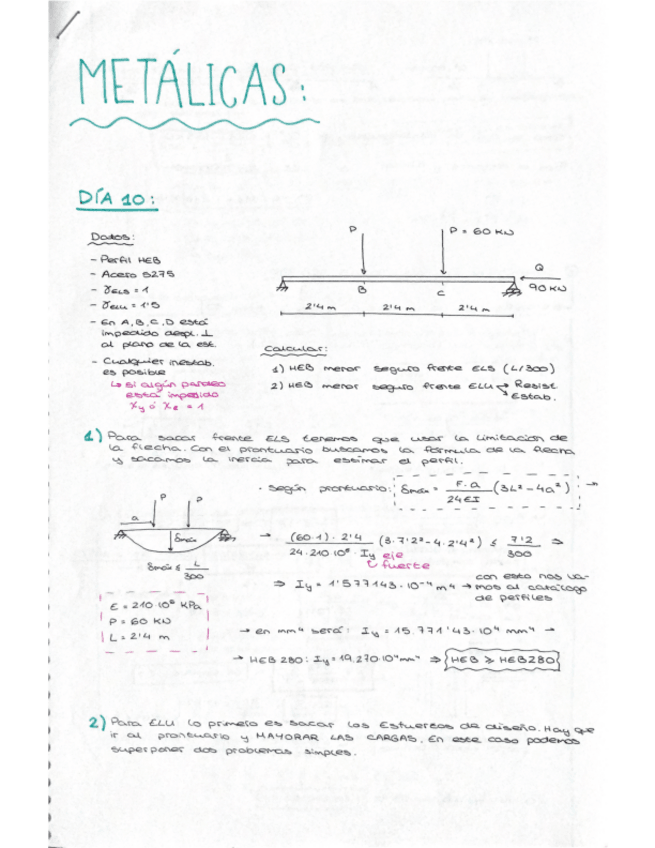 METÁLICAS:
DÍA 10:
Datos:
- Perfil HEB
- Acero S275
- γELS = 1
- γELU = 1'5
- En A, B, C, D está
impedido despl. ⊥
al plano de la est.
- Cualquier inestab.
es posible
↳ si algún pandeo
está impedido
χy ó χz = 1
P
P = 60 KN
Q
90 KN
B
C
2'4 m
2'4 m
2'4 m
Calcular:
1) HEB menor seguro frente ELS (L/300)
2) HEB menor seguro frente ELU
Resist.
Estab.
1) Para sacar frente ELS tenemos que usar la limitación de
la flecha. Con el prontuario buscamos la fórmula de la flecha
y sacamos la inercia para estimar el perfil.
· Según prontuario: δmáx = F·a / 24EI (3L² - 4a²) →
a
P
P
δmáx
δmáx ≤ L/300
→ (60·1)·2'4 / 24·210·10⁶·Iy (3·7'2² - 4·2'4²) ≤ 7'2 / 300 ⇒
eje
fuerte
⇒ Iy = 1'577143·10⁻⁴ m⁴ → con esto nos va-
mos al catálogo
de perfiles
E = 210·10⁶ KPa
P = 60 KN
L = 2'4 m
→ en mm⁴ será: Iy = 15.771'43·10⁴ mm⁴ →
→ HEB 280: Iy = 19.270·10⁴ mm⁴ ⇒ HEB ≥ HEB280
2) Para ELU lo primero es sacar los Esfuerzos de diseño. Hay que
ir al prontuario y MAYORAR LAS CARGAS. En este caso podemos
superponer dos problemas simples.